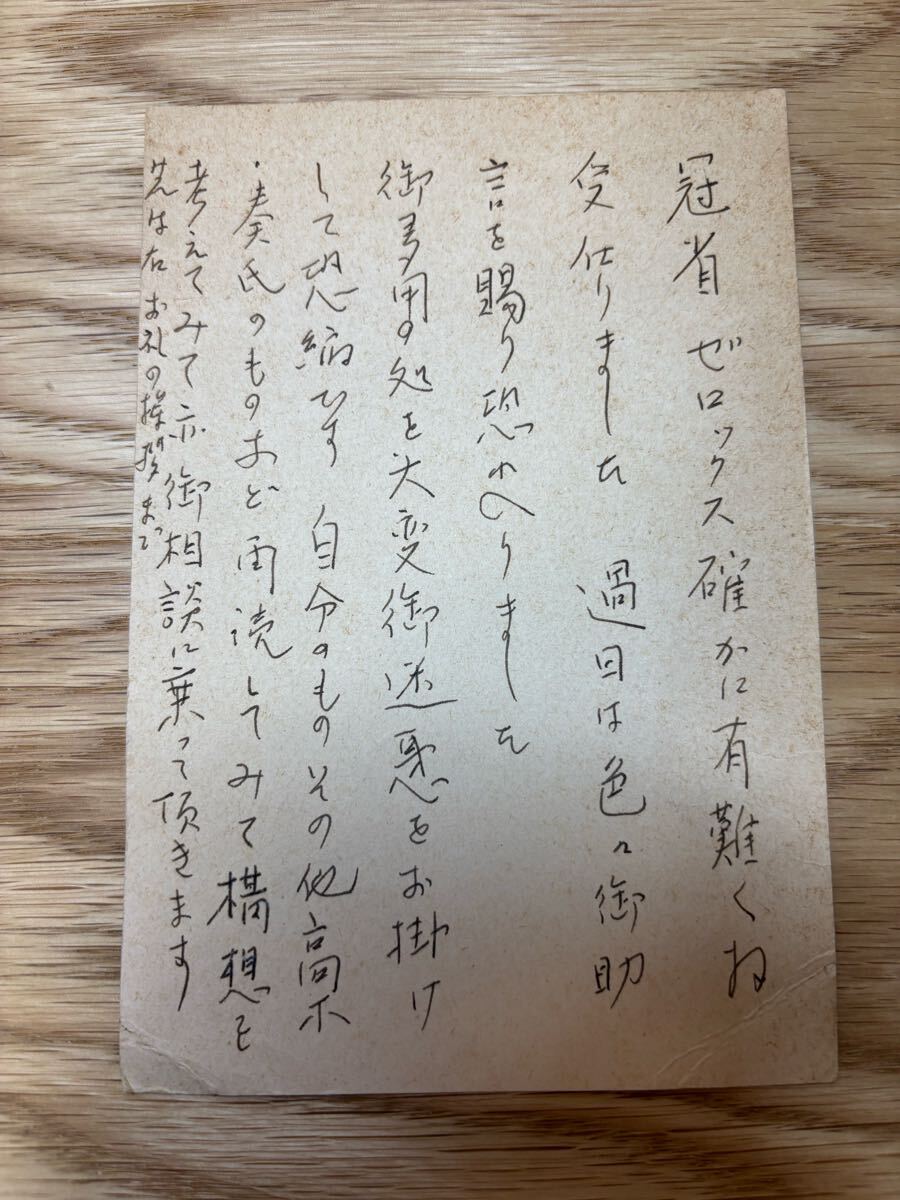 冠省 ゼロックス確かに有難くお
受仕りました 過日は色々御助
言を賜り恐れ入りました
御多用の処を大変御迷惑をお掛け
して恐縮です 自分のものその他高木
・奏氏のものなど再読してみて構想を
考えてみて亦御相談に乗って頂きます
先は右お礼の挨拶まで